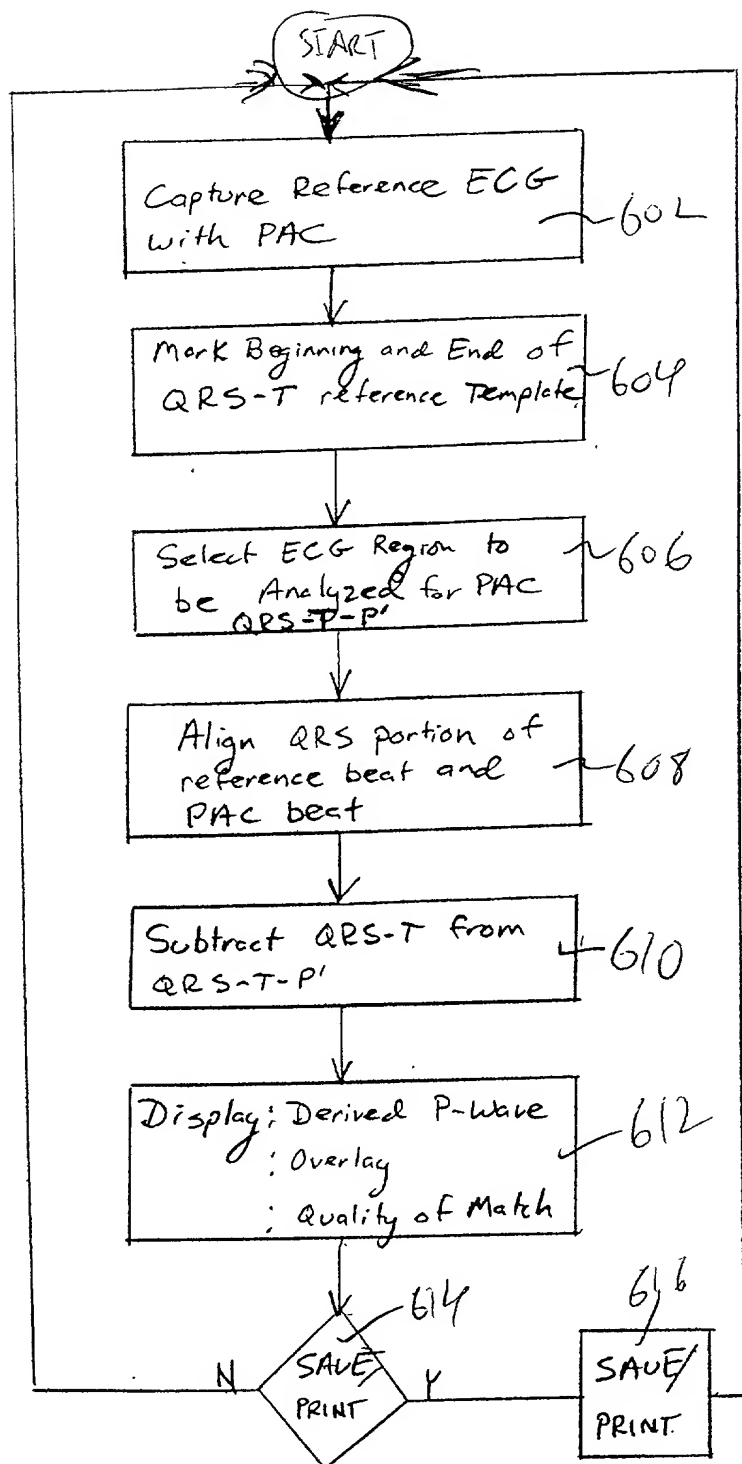 START
Capture Reference ECG
with PAC
602
Mark Beginning and End of
QRS-T reference Template
604
Select ECG Region to
be Analyzed for PAC
QRS-T-P'
606
Align QRS portion of
reference beat and
PAC beat
608
Subtract QRS-T from
QRS-T-P'
610
Display: Derived P-Wave
: Overlay
: Quality of Match
612
614
616
N
SAVE/
PRINT
Y
SAVE/
PRINT.